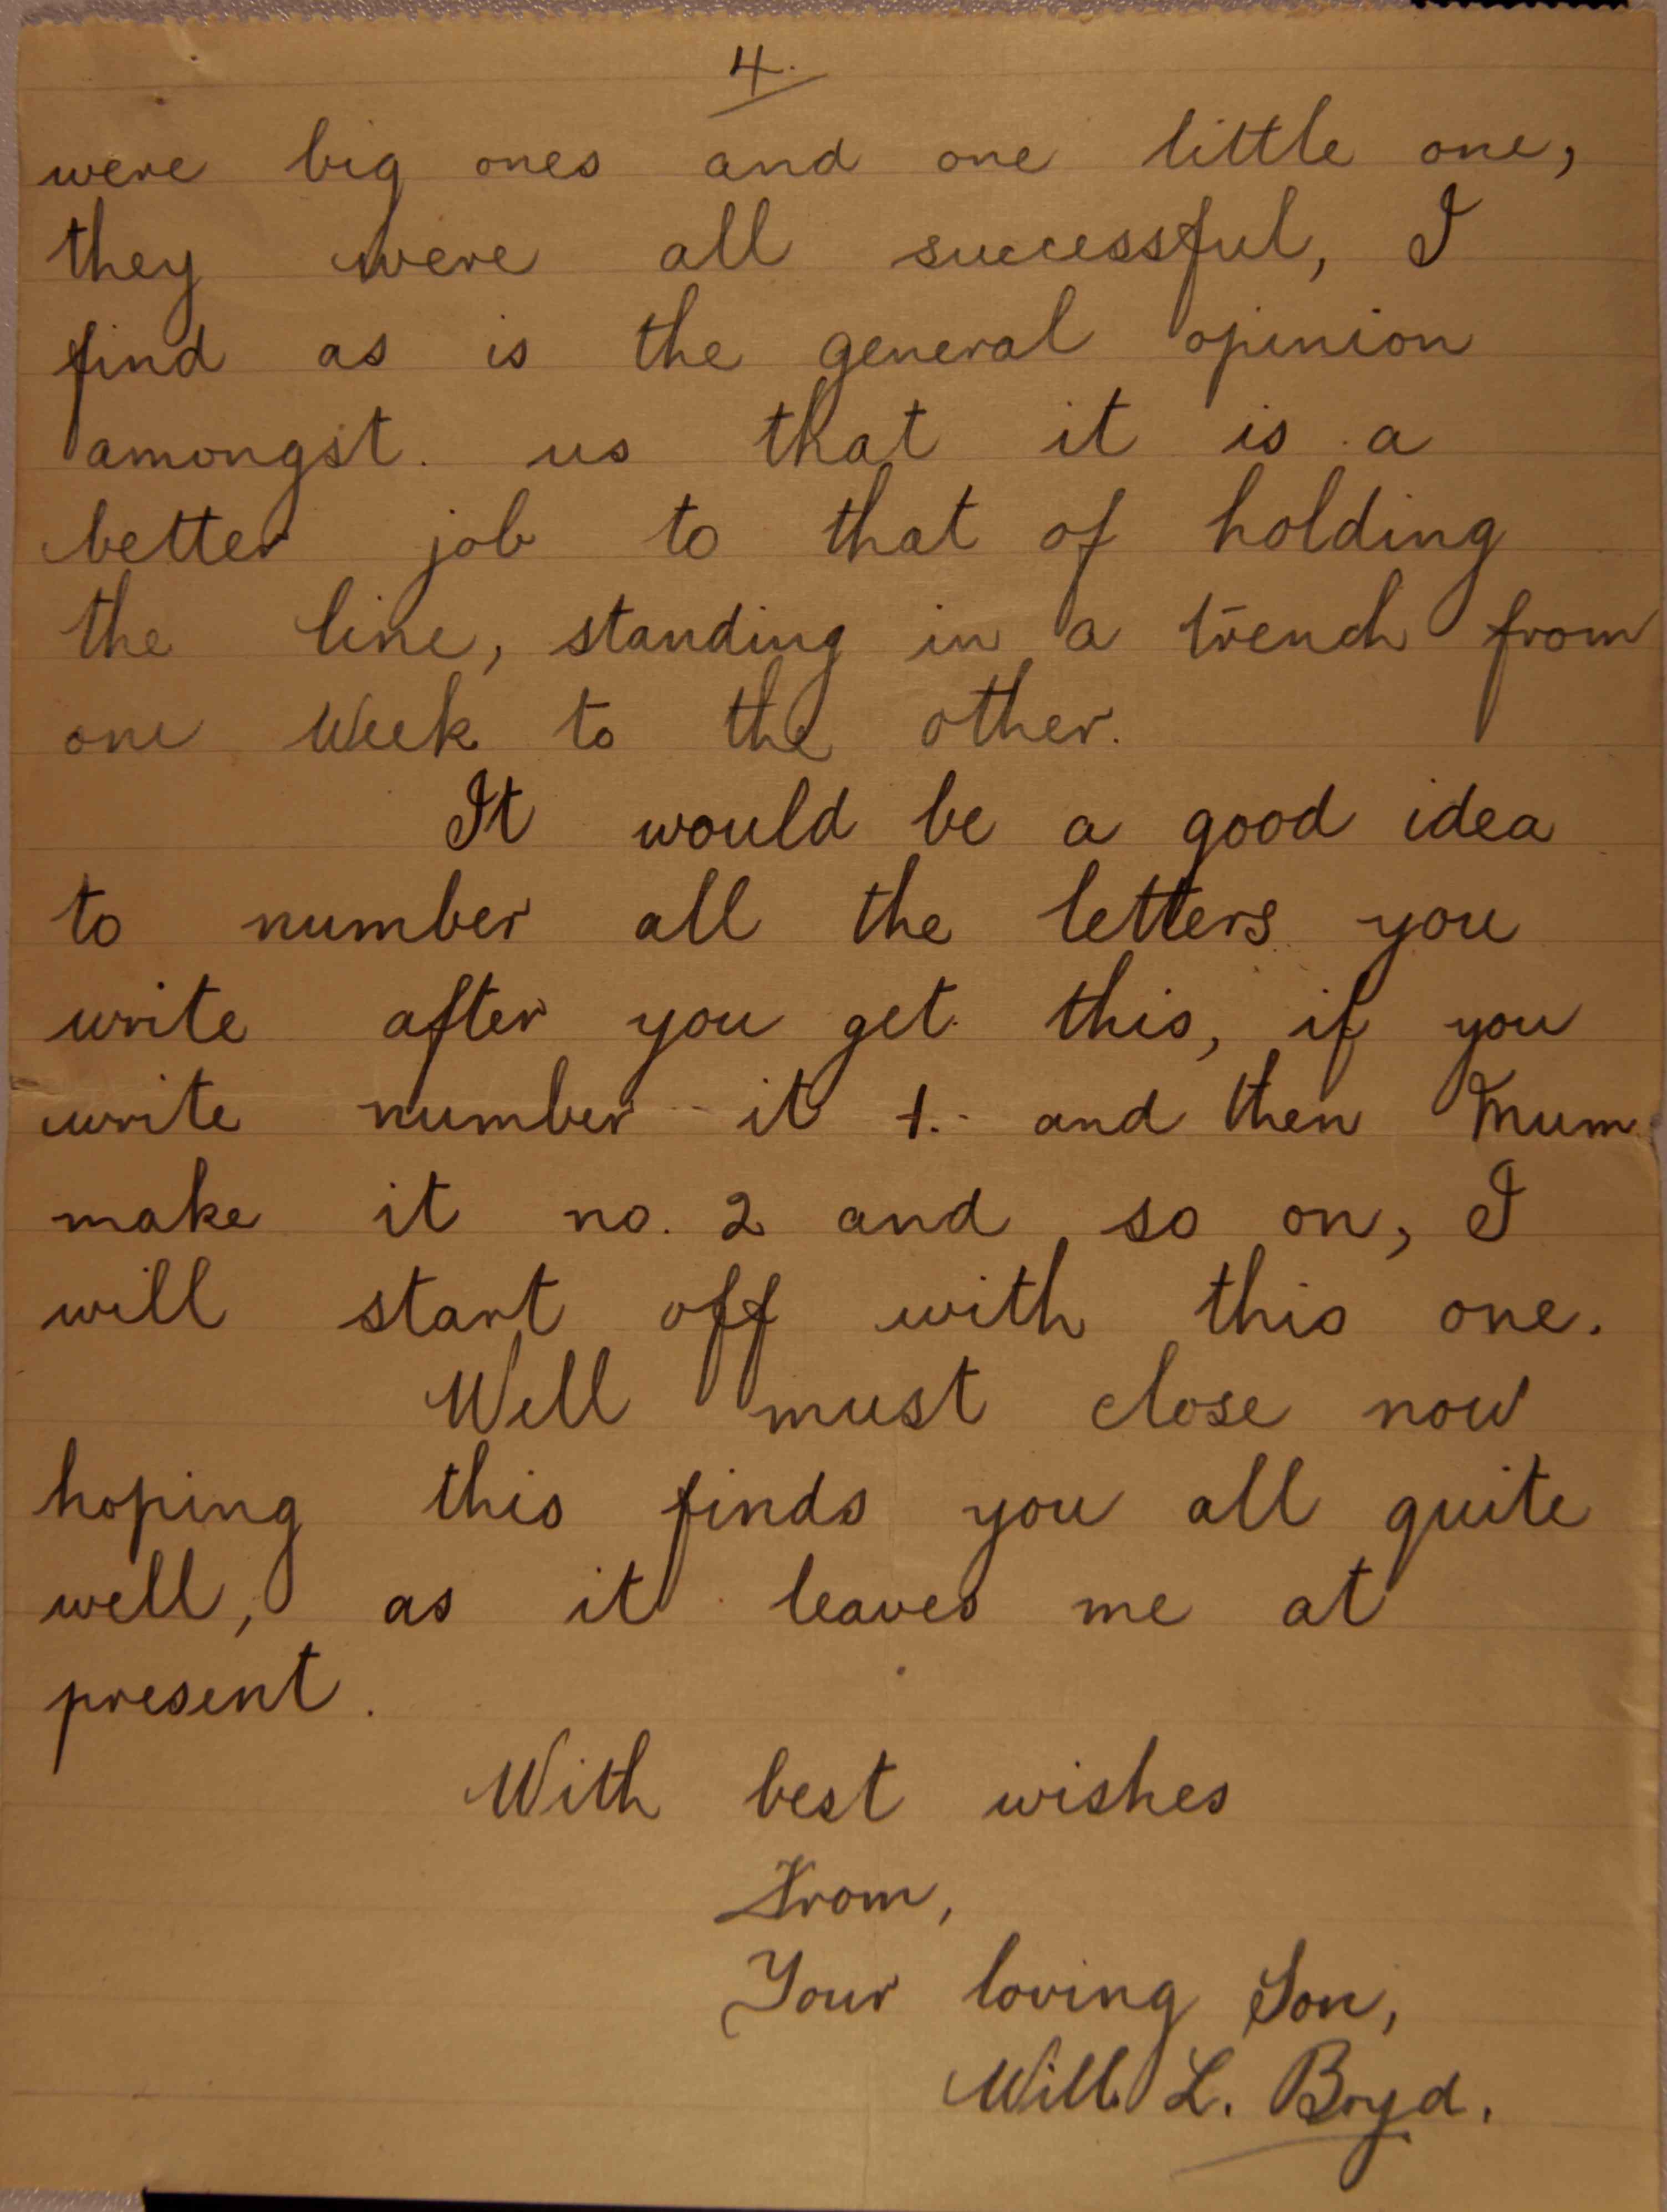 4.
were big ones and one little one,
they were all successful, I
find as is the general opinion
amongst us that it is a
better job to that of holding
the line, standing in a trench from
one Week to the other.
It would be a good idea
to number all the letters you
write after you get this, if you
write number it 1. and then Mum
make it no. 2 and so on, I
will start off with this one.
Well must close now
hoping this finds you all quite
well, as it leaves me at
present.
With best wishes
From,
Your loving Son,
Will L. Boyd.